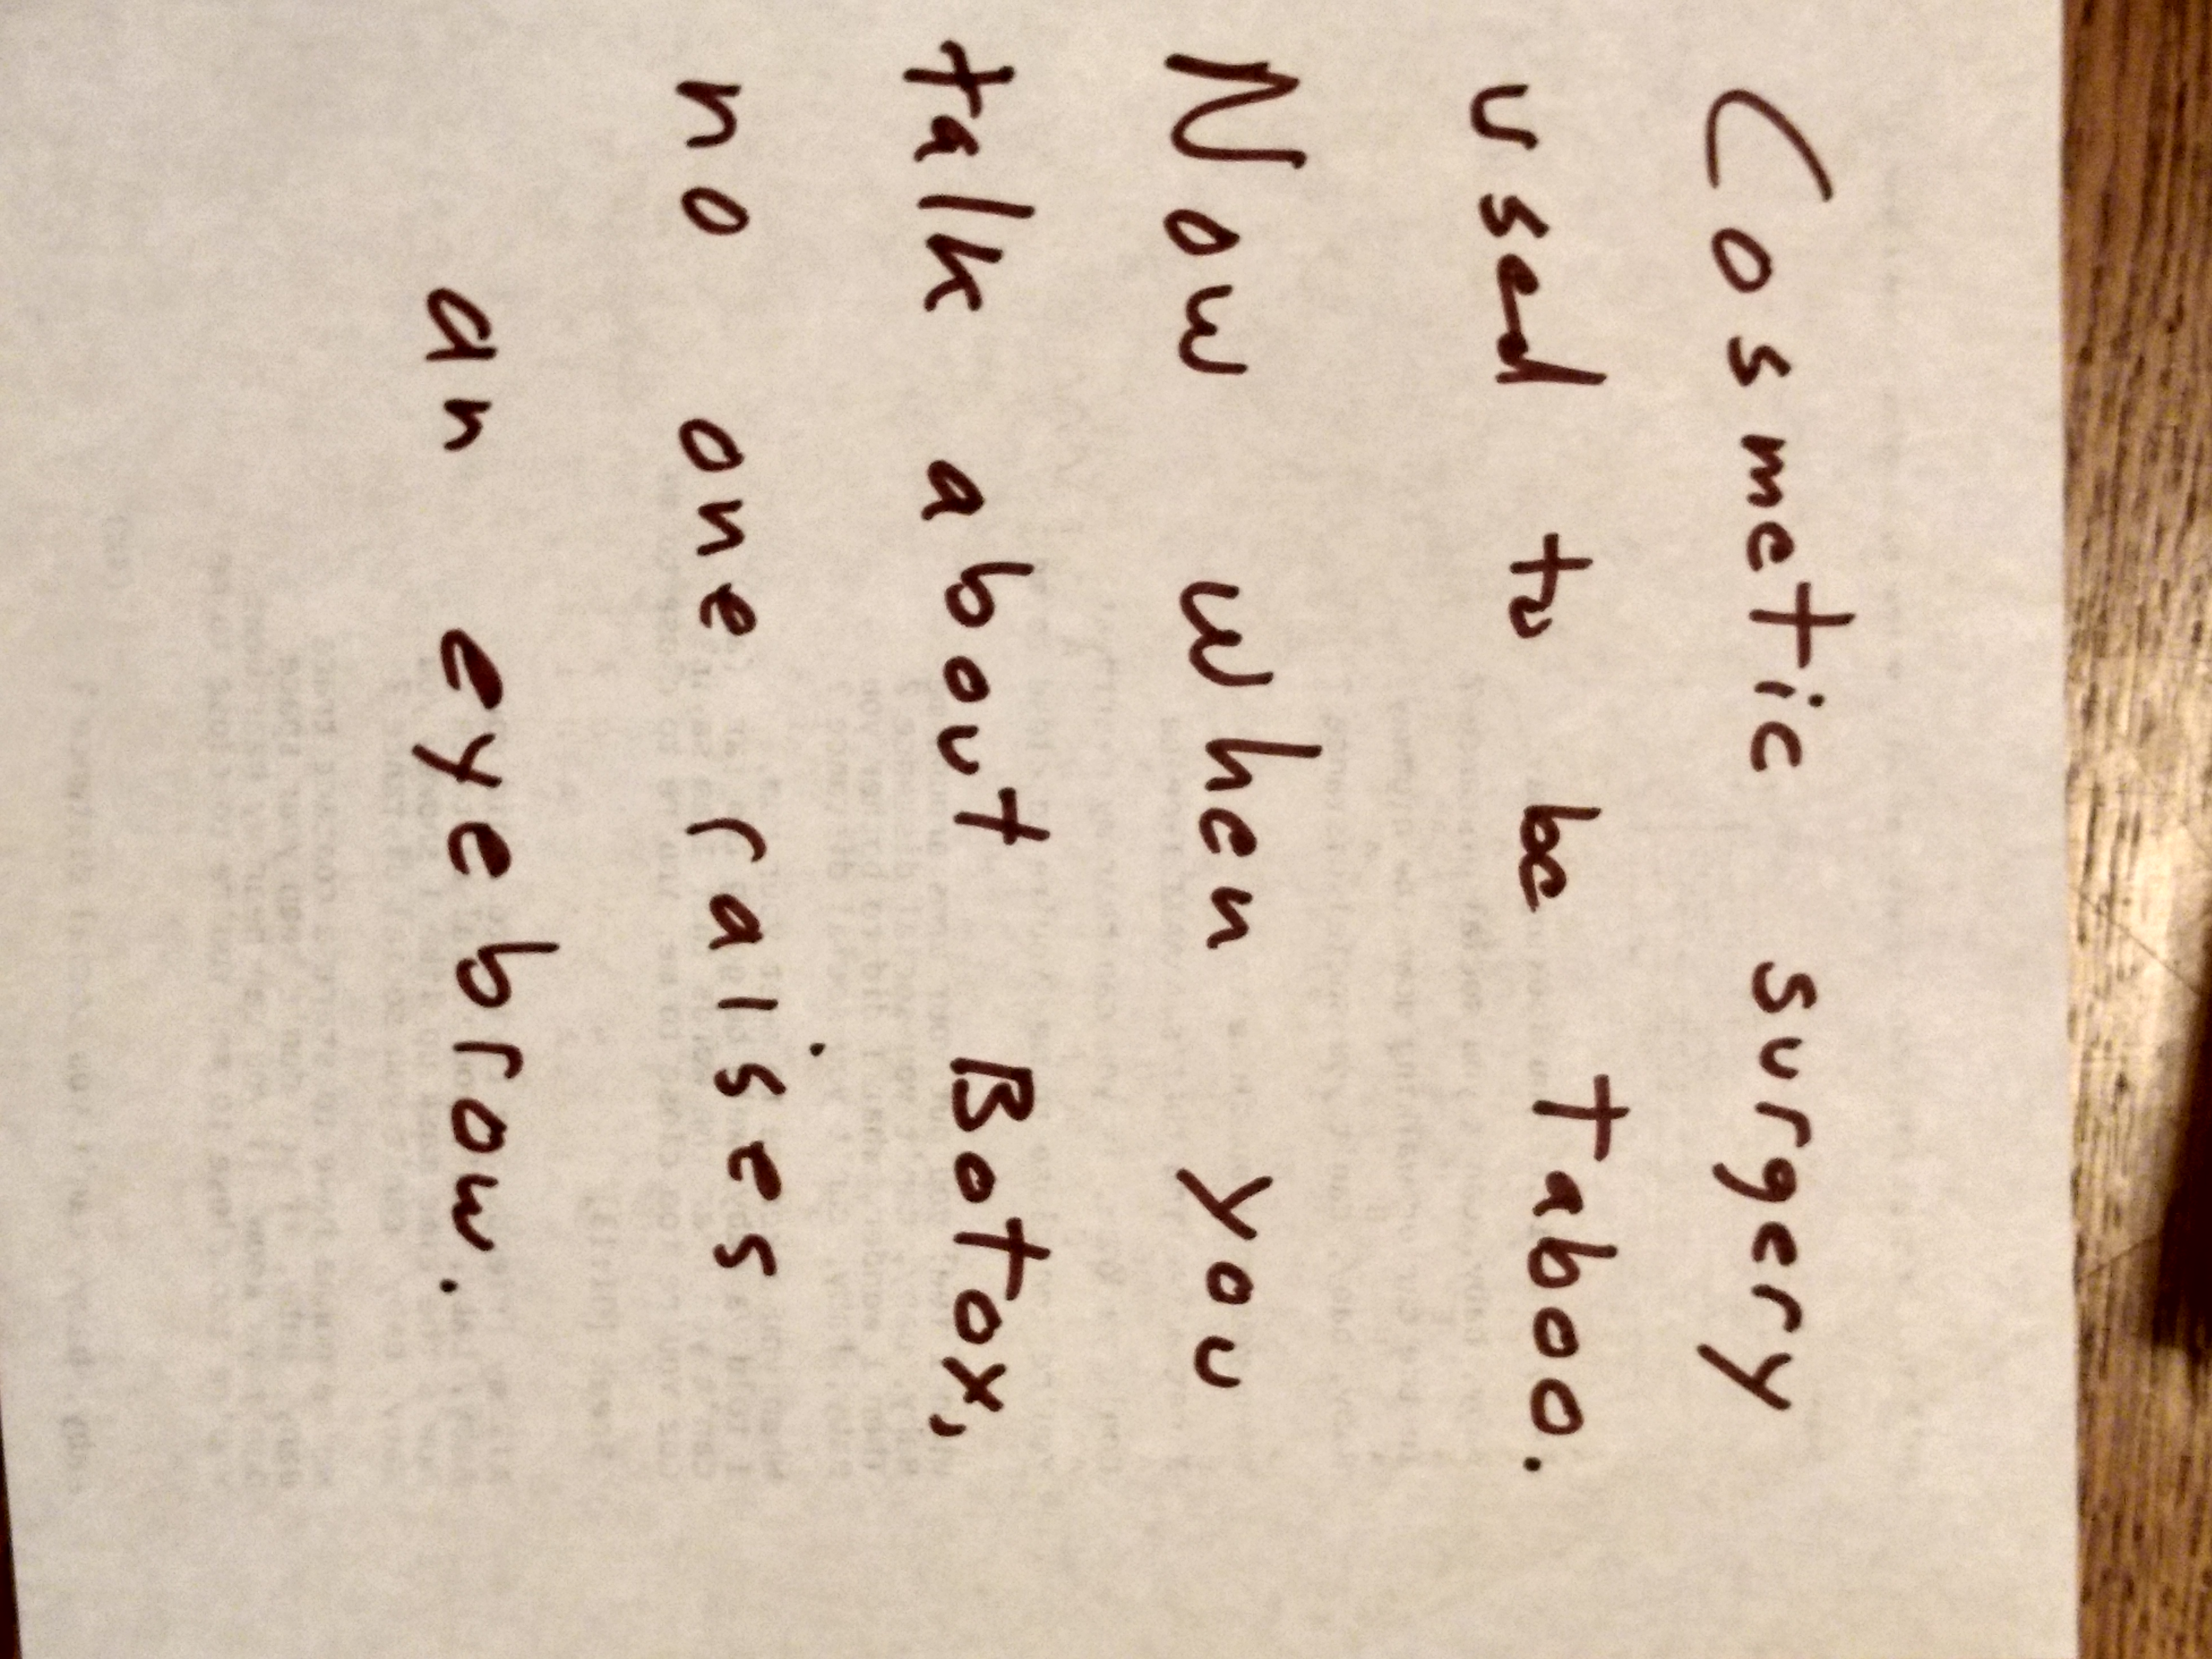 Cosmetic surgery
used to be taboo.
Now when you
talk about Botox,
no one raises
an eyebrow.